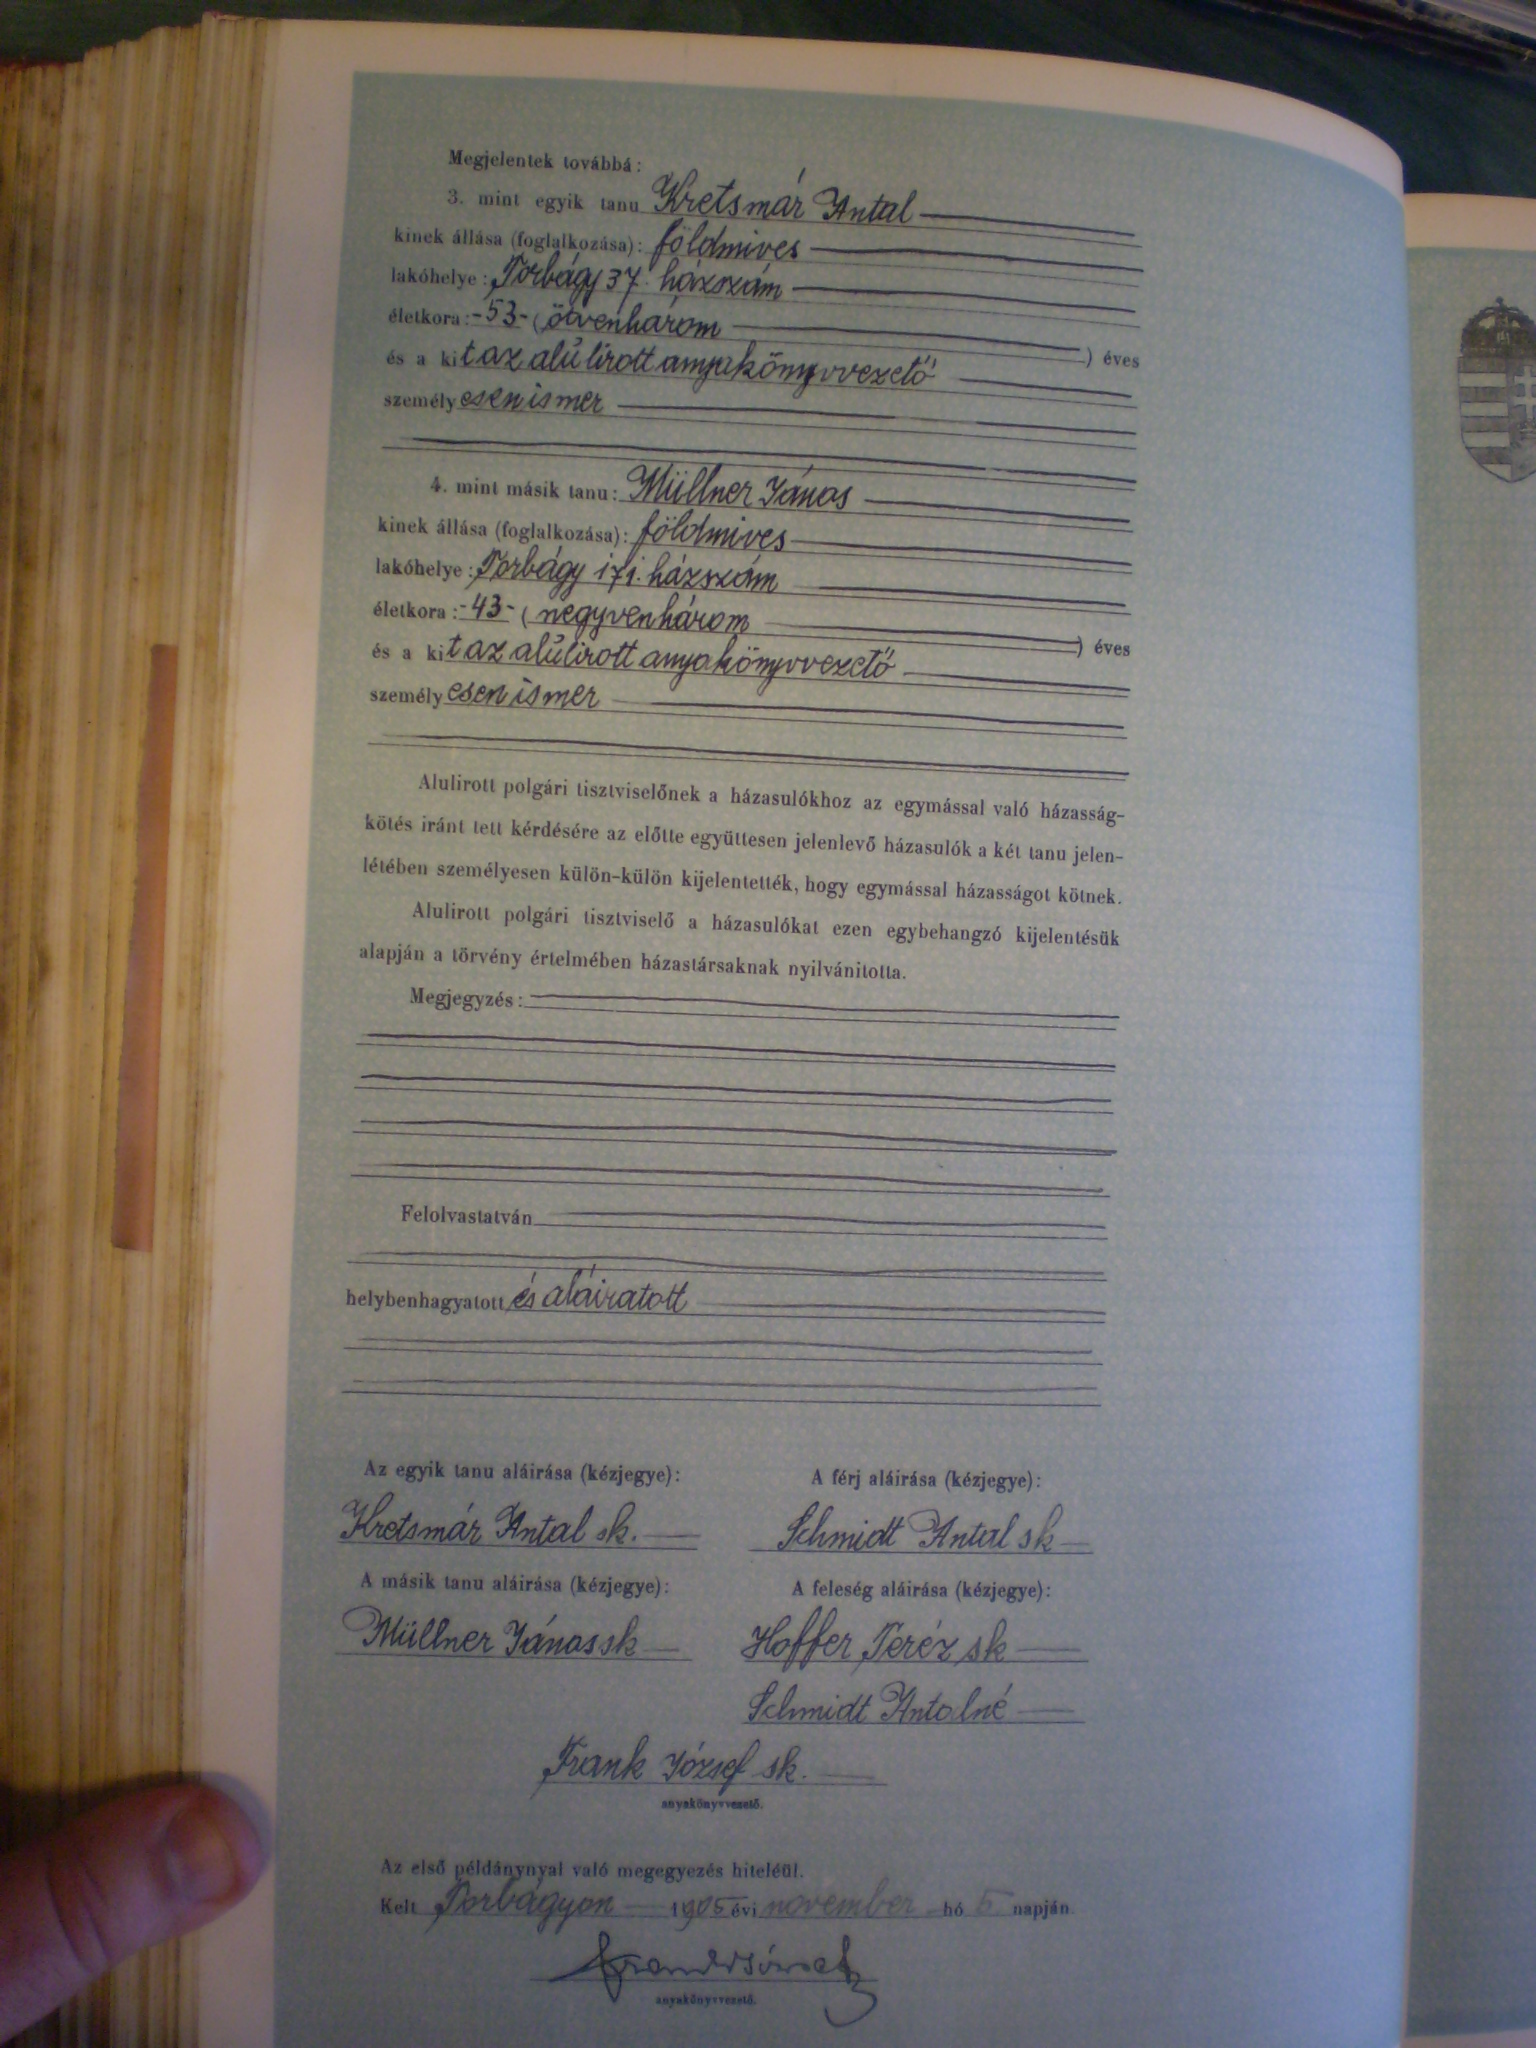 Megjelentek továbbá:
3. mint egyik tanu Kretsmár Antal
kinek állása (foglalkozása): földmives
lakóhelye: Torbágy 37. házszám
életkora: -53- (ötvenhárom ) éves
és a kit az alulirott anyakönyvvezető
személyesen ismer
4. mint másik tanu: Müllner János
kinek állása (foglalkozása): földmives
lakóhelye: Torbágy 171. házszám
életkora: -43- (negyvenhárom ) éves
és a kit az alulirott anyakönyvvezető
személyesen ismer
Alulirott polgári tisztviselőnek a házasulókhoz az egymással való házasság-
kötés iránt tett kérdésére az előtte együttesen jelenlevő házasulók a két tanu jelen-
létében személyesen külön-külön kijelentették, hogy egymással házasságot kötnek.
Alulirott polgári tisztviselő a házasulókat ezen egybehangzó kijelentésük
alapján a törvény értelmében házastársaknak nyilvánitotta.
Megjegyzés:
Felolvastatván
helybenhagyatott és aláiratott
Az egyik tanu aláirása (kézjegye): A férj aláirása (kézjegye):
Kretsmár Antal sk. Schmidt Antal sk
A másik tanu aláirása (kézjegye): A feleség aláirása (kézjegye):
Müllner János sk Hoffer Teréz sk
Schmidt Antalné
Frank József sk.
anyakönyvvezető.
Az első példánynyal való megegyezés hiteléül.
Kelt Torbágyon 1905 évi november hó 5 napján.
Frank József
anyakönyvvezető.